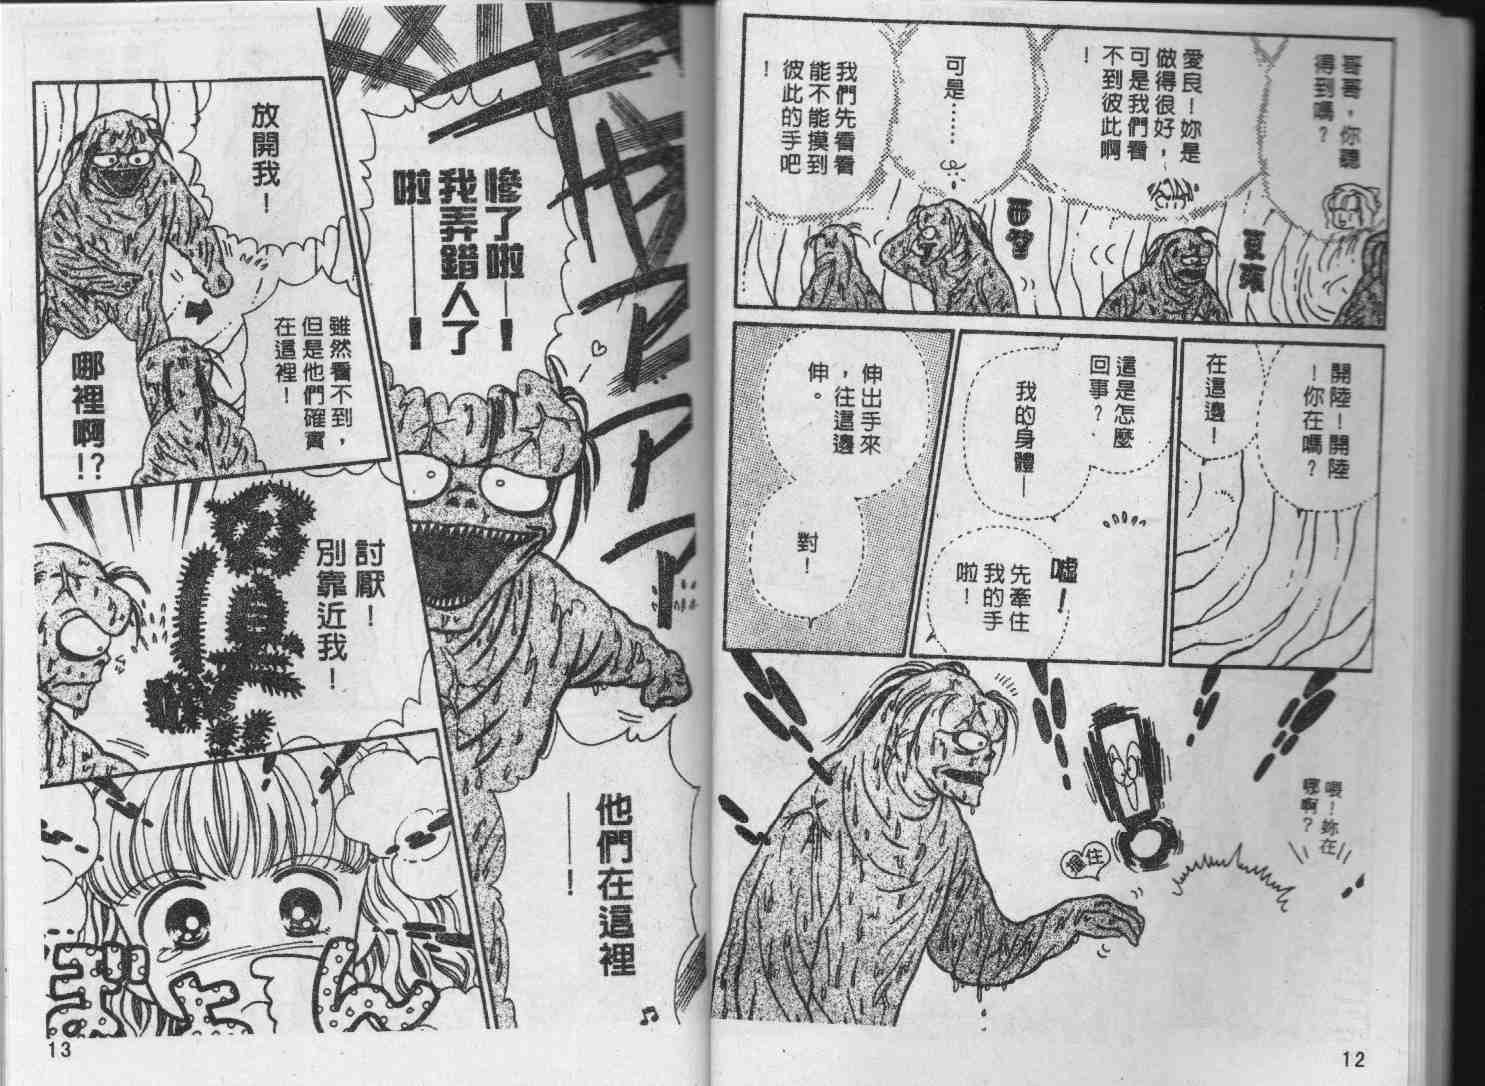 哥哥，你聽
得到嗎？
愛良！妳是
做得很好，
可是我們看
不到彼此啊
！
可是……
我們先看看
能不能摸到
彼此的手吧
！
開陸！開陸
！你在嗎？
在這邊！
這是怎麼
回事？
我的身體—
噓！
先牽住
我的手
啦！
伸出手來
，往這邊
伸。
對！
喂！妳在
哪啊？
住
12
慘了啦—！
我弄錯人了
啦——！
放開我！
雖然看不到，
但是他們確實
在這裡！
哪裡啊!?
討厭！
別靠近我！
他們在這裡
——！
13